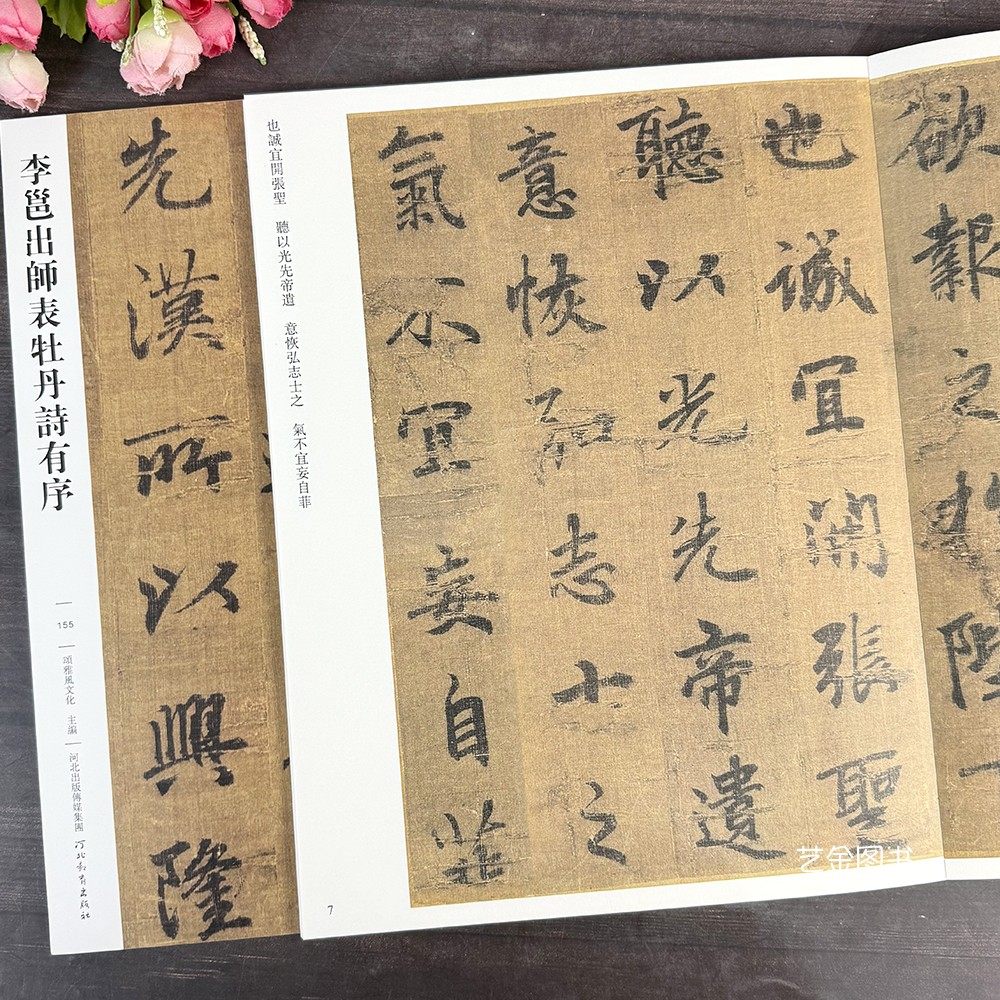 李邕出師表牡丹詩有序
155
頌雅風文化 主編
河北出版傳媒集團
河北教育出版社
先漢所以興隆
也誠宜開張聖 聽以光先帝遺 意恢弘志士之 氣不宜妄自菲
欲報之於陛
也誠宜開張聖
聽以光先帝遺
意恢弘志士之
氣不宜妄自菲
7
艺金图书